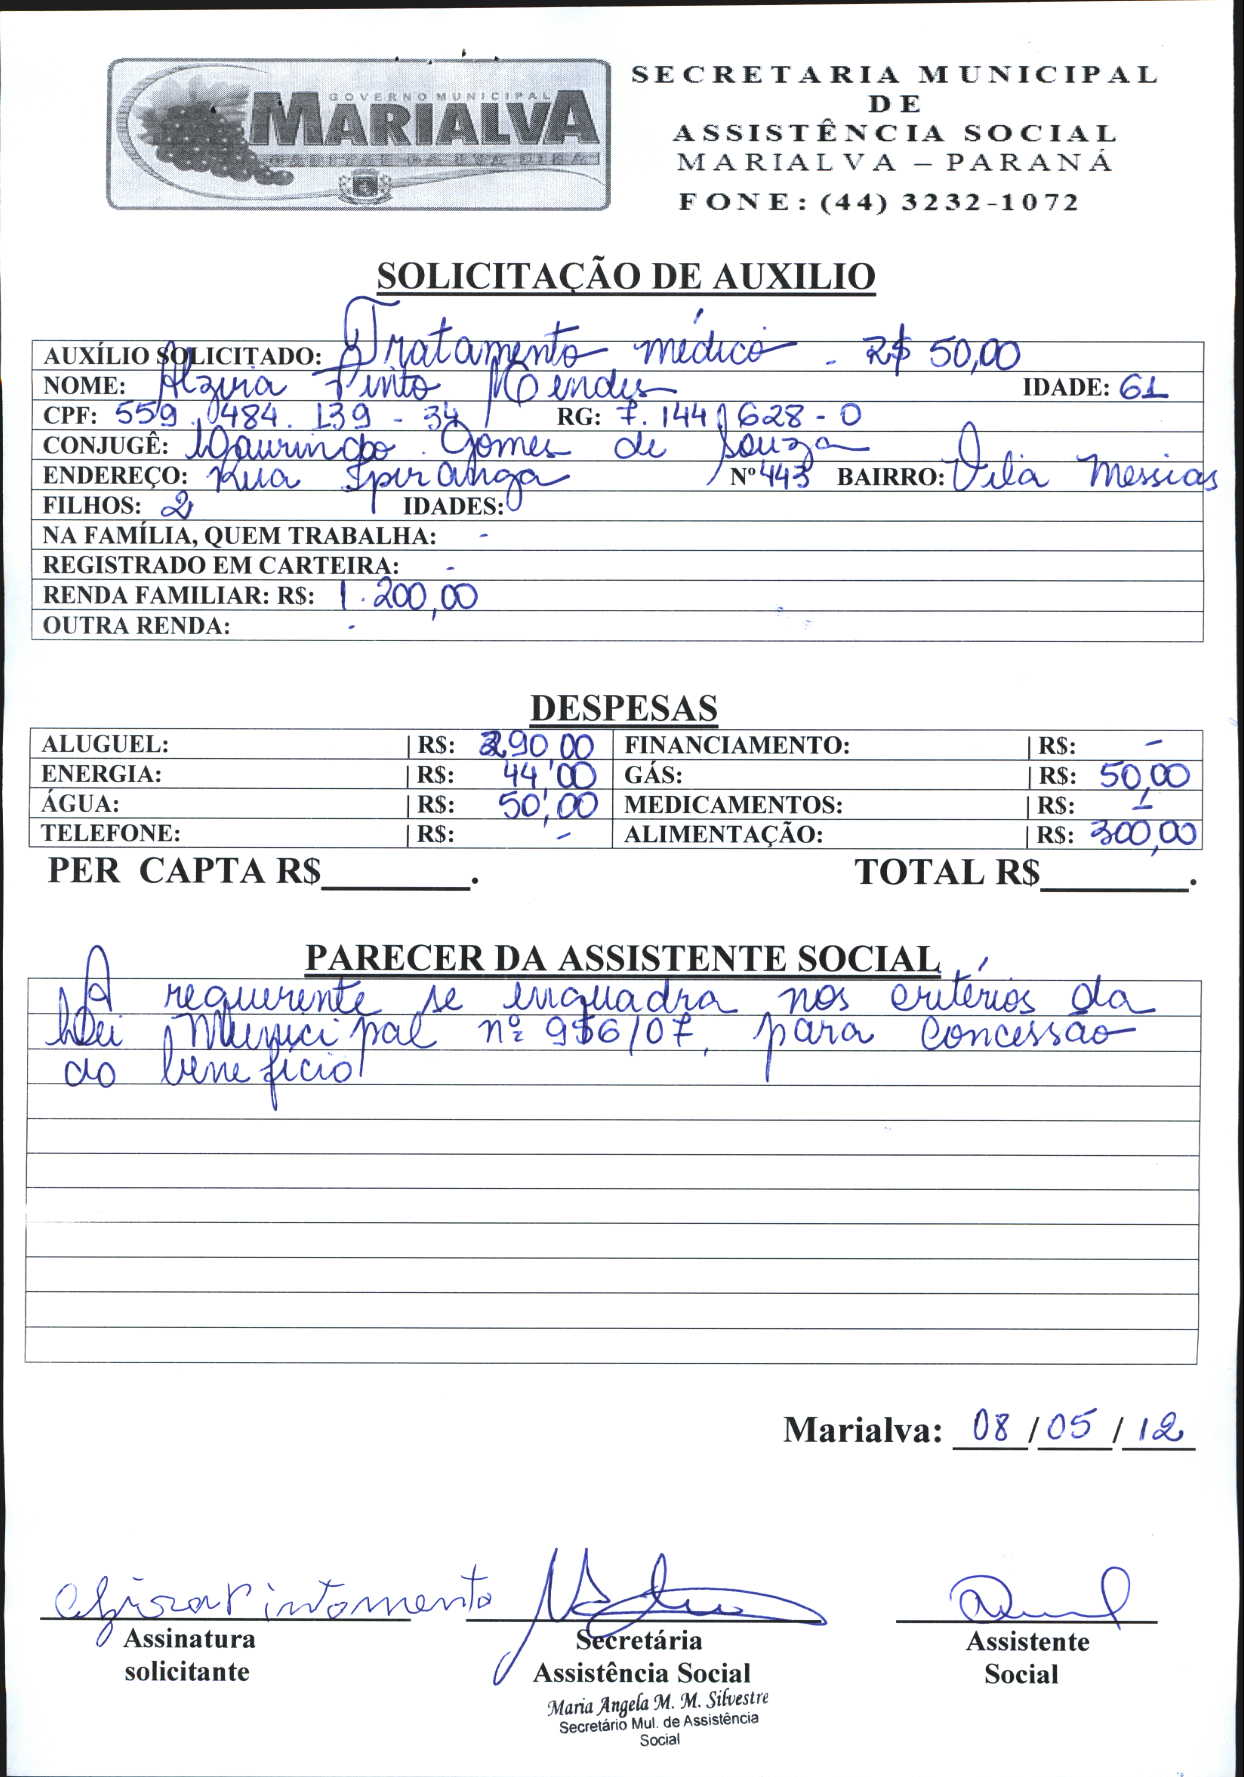 GOVERNO MUNICIPAL
MARIALVA
CAPITAL DA UVA FINA
SECRETARIA MUNICIPAL
DE
ASSISTÊNCIA SOCIAL
MARIALVA – PARANÁ
FONE: (44) 3232-1072
SOLICITAÇÃO DE AUXILIO
AUXÍLIO SOLICITADO: Tratamento médico - R$ 50,00
NOME: Alzira Pinto Mendes IDADE: 61
CPF: 559.484.139-34 RG: 7.144.628-0
CONJUGÊ: Gomes de Souza
ENDEREÇO: Rua Ipiranga Nº 443 BAIRRO: Vila Messias
FILHOS: 2 IDADES:
NA FAMÍLIA, QUEM TRABALHA: -
REGISTRADO EM CARTEIRA: -
RENDA FAMILIAR: R$: 1.200,00
OUTRA RENDA: -
DESPESAS
ALUGUEL: | R$: 290,00 FINANCIAMENTO: | R$: -
ENERGIA: | R$: 44,00 GÁS: | R$: 50,00
ÁGUA: | R$: 50,00 MEDICAMENTOS: | R$: -
TELEFONE: | R$: - ALIMENTAÇÃO: | R$: 300,00
PER CAPTA R$________. TOTAL R$________.
PARECER DA ASSISTENTE SOCIAL
A requerente se enquadra nos critérios da
Lei Municipal nº 956/07, para concessão
do benefício
Marialva: 08/05/12
Assinatura solicitante
Secretária Assistência Social
Assistente Social
Maria Angela M. M. Silvestre
Secretário Mul. de Assistência
Social